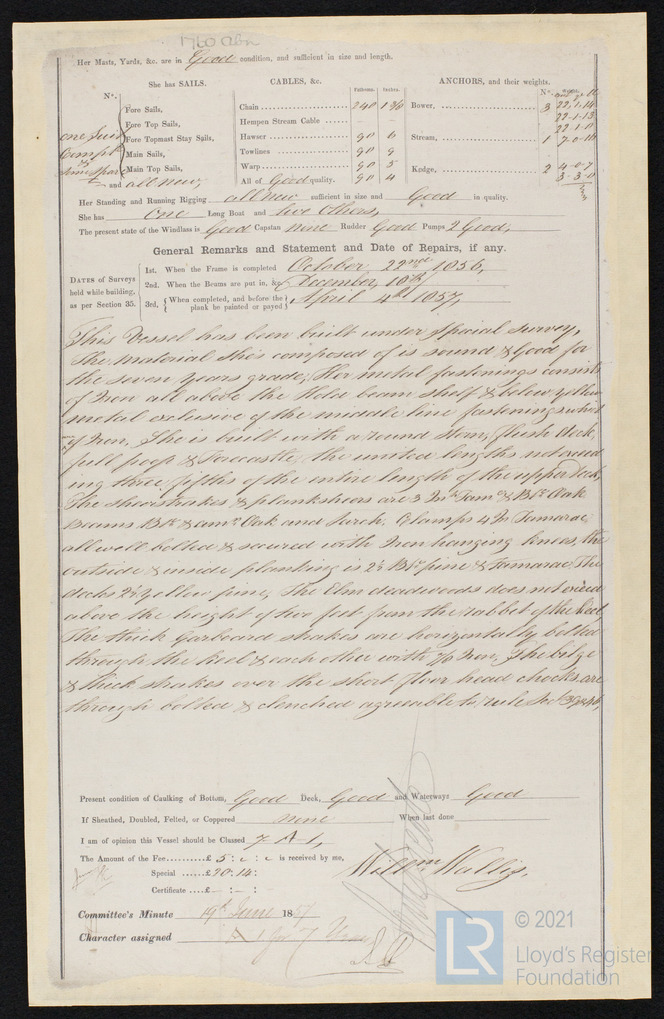 1760 abn
Her Masts, Yards, &c. are in Good condition, and sufficient in size and length.
She has SAILS. CABLES, &c. ANCHORS, and their weights.
N°. Fathoms. Inches. N°.
Fore Sails, Chain 240 1 3/16 Bower, 3 22.1.14
Fore Top Sails, Hempen Stream Cable 22.1.13
one Suit Fore Topmast Stay Sails, Hawser 90 6 22.1.0
Compt Main Sails, Towlines 90 9 Stream, 1 7.0.10
Main Top Sails, Warp 90 5 Kedge, 2 4.0.7
and all new, All of Good quality. 90 4 3.3.0
Her Standing and Running Rigging all new sufficient in size and Good in quality.
She has one Long Boat and two others,
The present state of the Windlass is Good Capstan none Rudder Good Pumps 2 Good,
General Remarks and Statement and Date of Repairs, if any.
DATES of Surveys held while building, as per Section 35.
1st. When the Frame is completed October 22nd 1856,
2nd. When the Beams are put in, &c. December 10th
3rd. When completed, and before the plank be painted or payed April 4th 1857,
This Vessel has been built under Special Survey,
The material She's composed of is sound & Good for
the seven Years grade, Her metal fastenings consists
of Iron all above the Hold beam shelf & below yellow
metal exclusive of the middle line fastenings which
of Iron, She is built with a round Stern, flush deck,
full poop & Forecastle, the united lengths not exceed
ing three fifths of the entire length of the upper Deck,
The sheerstrakes & planksheers are 3 In Tamc & Bk Oak
Beams Bk & amn Oak and Larch, Clamps 4 In Tamarac
all well bolted & secured with Iron hanging knees, the
outside & inside planking is 2½ Bk pine & Tamarac The
decks 2½ yellow pine, The Elm deadwoods does not exceed
above the height of two feet from the rabbet of the keel
The thick Garboard strakes are horizontally bolted
through the keel & each other with 7/8 Iron, The bilge
& thick strakes over the short floor head chocks are
through bolted & clenched agreeable to rule
Present condition of Caulking of Bottom, Good Deck, Good and Waterways Good
If Sheathed, Doubled, Felted, or Coppered none When last done
I am of opinion this Vessel should be Classed 7 A 1,
The Amount of the Fee £ 5 : " : " is received by me,
Special £20.14: Willm Wallis,
Certificate £ - : - :
Committee's Minute 19th June 1857
Character assigned A 1 for 7 Years
LR © 2021
Lloyd's Register
Foundation